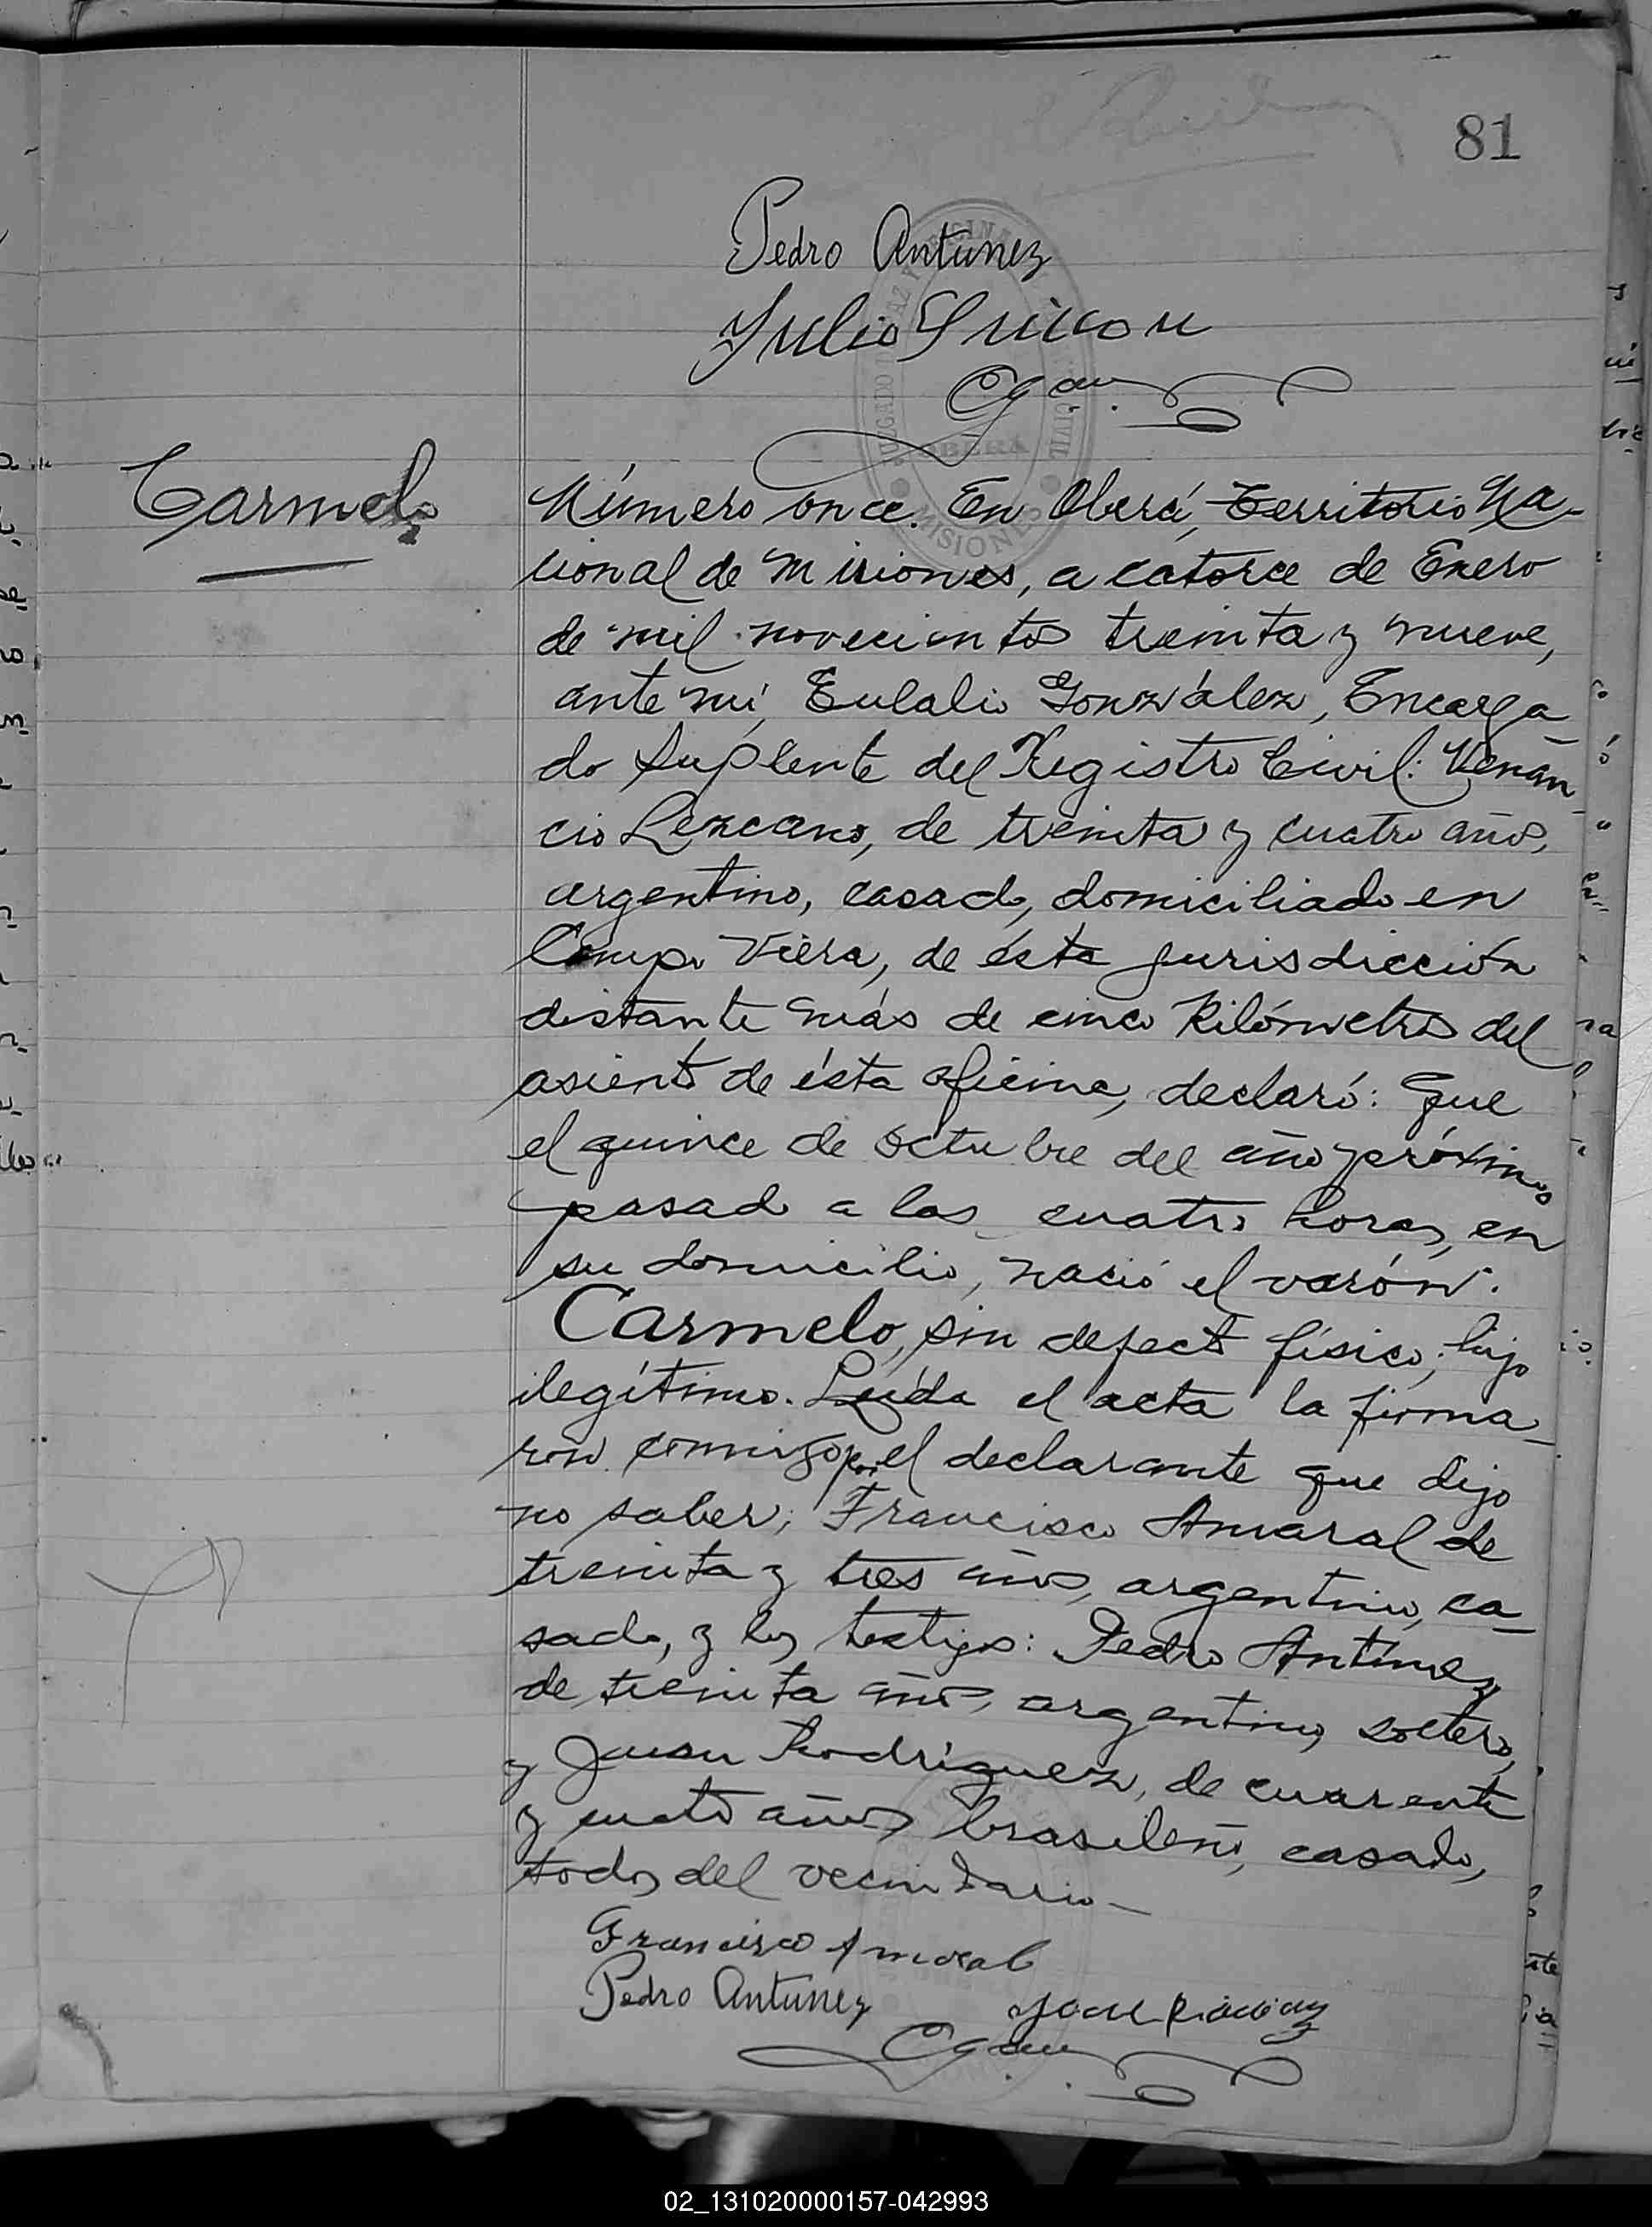 81
Pedro Antunez
Julio
Carmelo
Número once. En Oberá, Territorio Na-
cional de Misiones, a catorce de Enero
de mil novecientos treinta y nueve,
ante mí, Eulalio González, Encarga-
do Suplente del Registro Civil: Venan-
cio Lezcano, de treinta y cuatro años,
argentino, casado, domiciliado en
Campo Viera, de ésta jurisdicción
distante más de cinco kilómetros del
asiento de ésta oficina, declaró: Que
el quince de octubre del año próximo
pasado a las cuatro horas, en
su domicilio, nació el varón.
Carmelo, sin defecto físico, hijo
ilegítimo. Leída el acta la firma-
ron conmigo por el declarante que dijo
no saber; Francisco Amaral de
treinta y tres años, argentino, ca-
sado, y los testigos: Pedro Antunez
de treinta años, argentino, soltero,
y Juan Rodríguez, de cuarenta
y cuatro años, brasileño, casado,
todos del vecindario—
Francisco Amaral
Pedro Antunez
JUZGADO DE PAZ Y CIVIL
OBERÁ
MISIONES
02_131020000157-042993